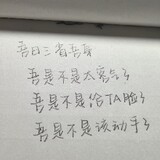 吾日三省吾身
吾是不是太客气了
吾是不是给TA脸了
吾是不是该动手了